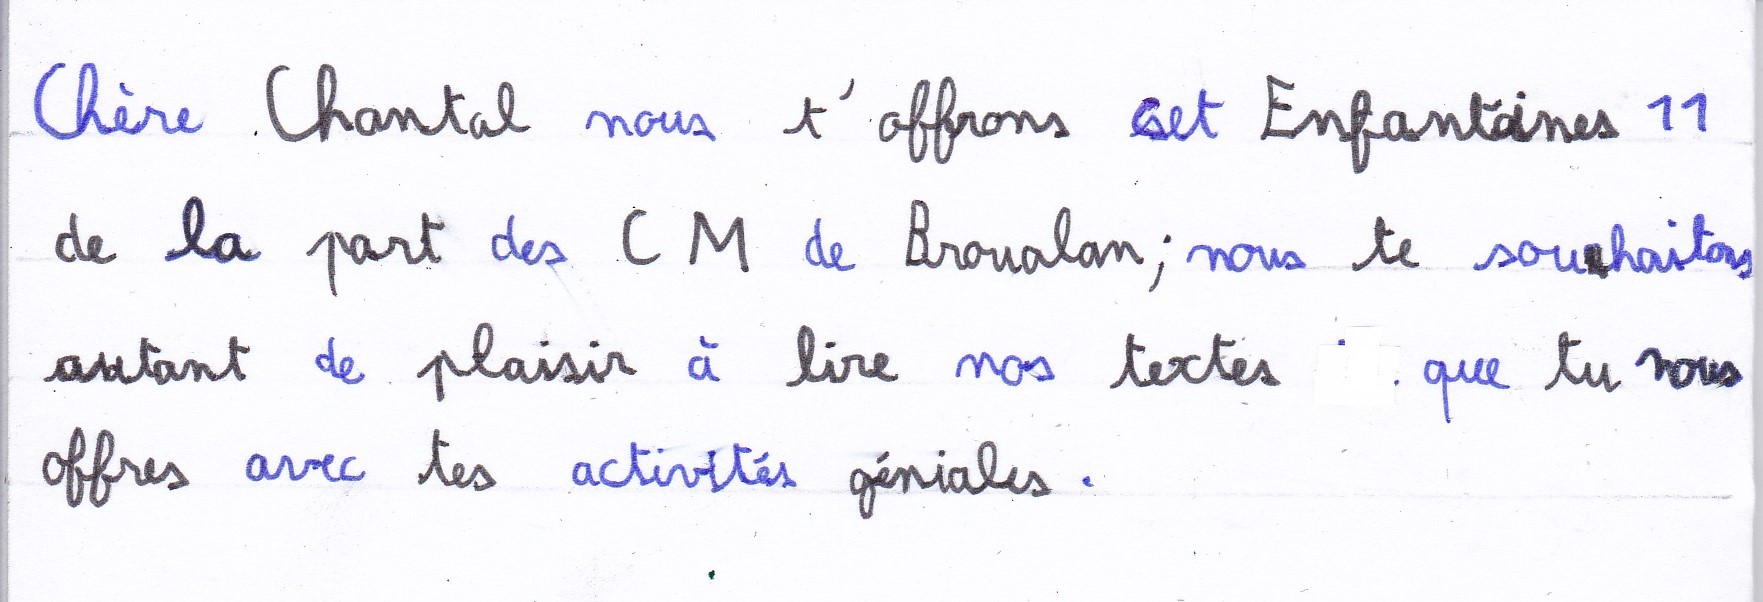 Chère Chantal nous t'offrons cet Enfantaines 11
de la part des CM de Broualan; nous te souhaitons
autant de plaisir à lire nos textes que tu nous
offres avec tes activités géniales.